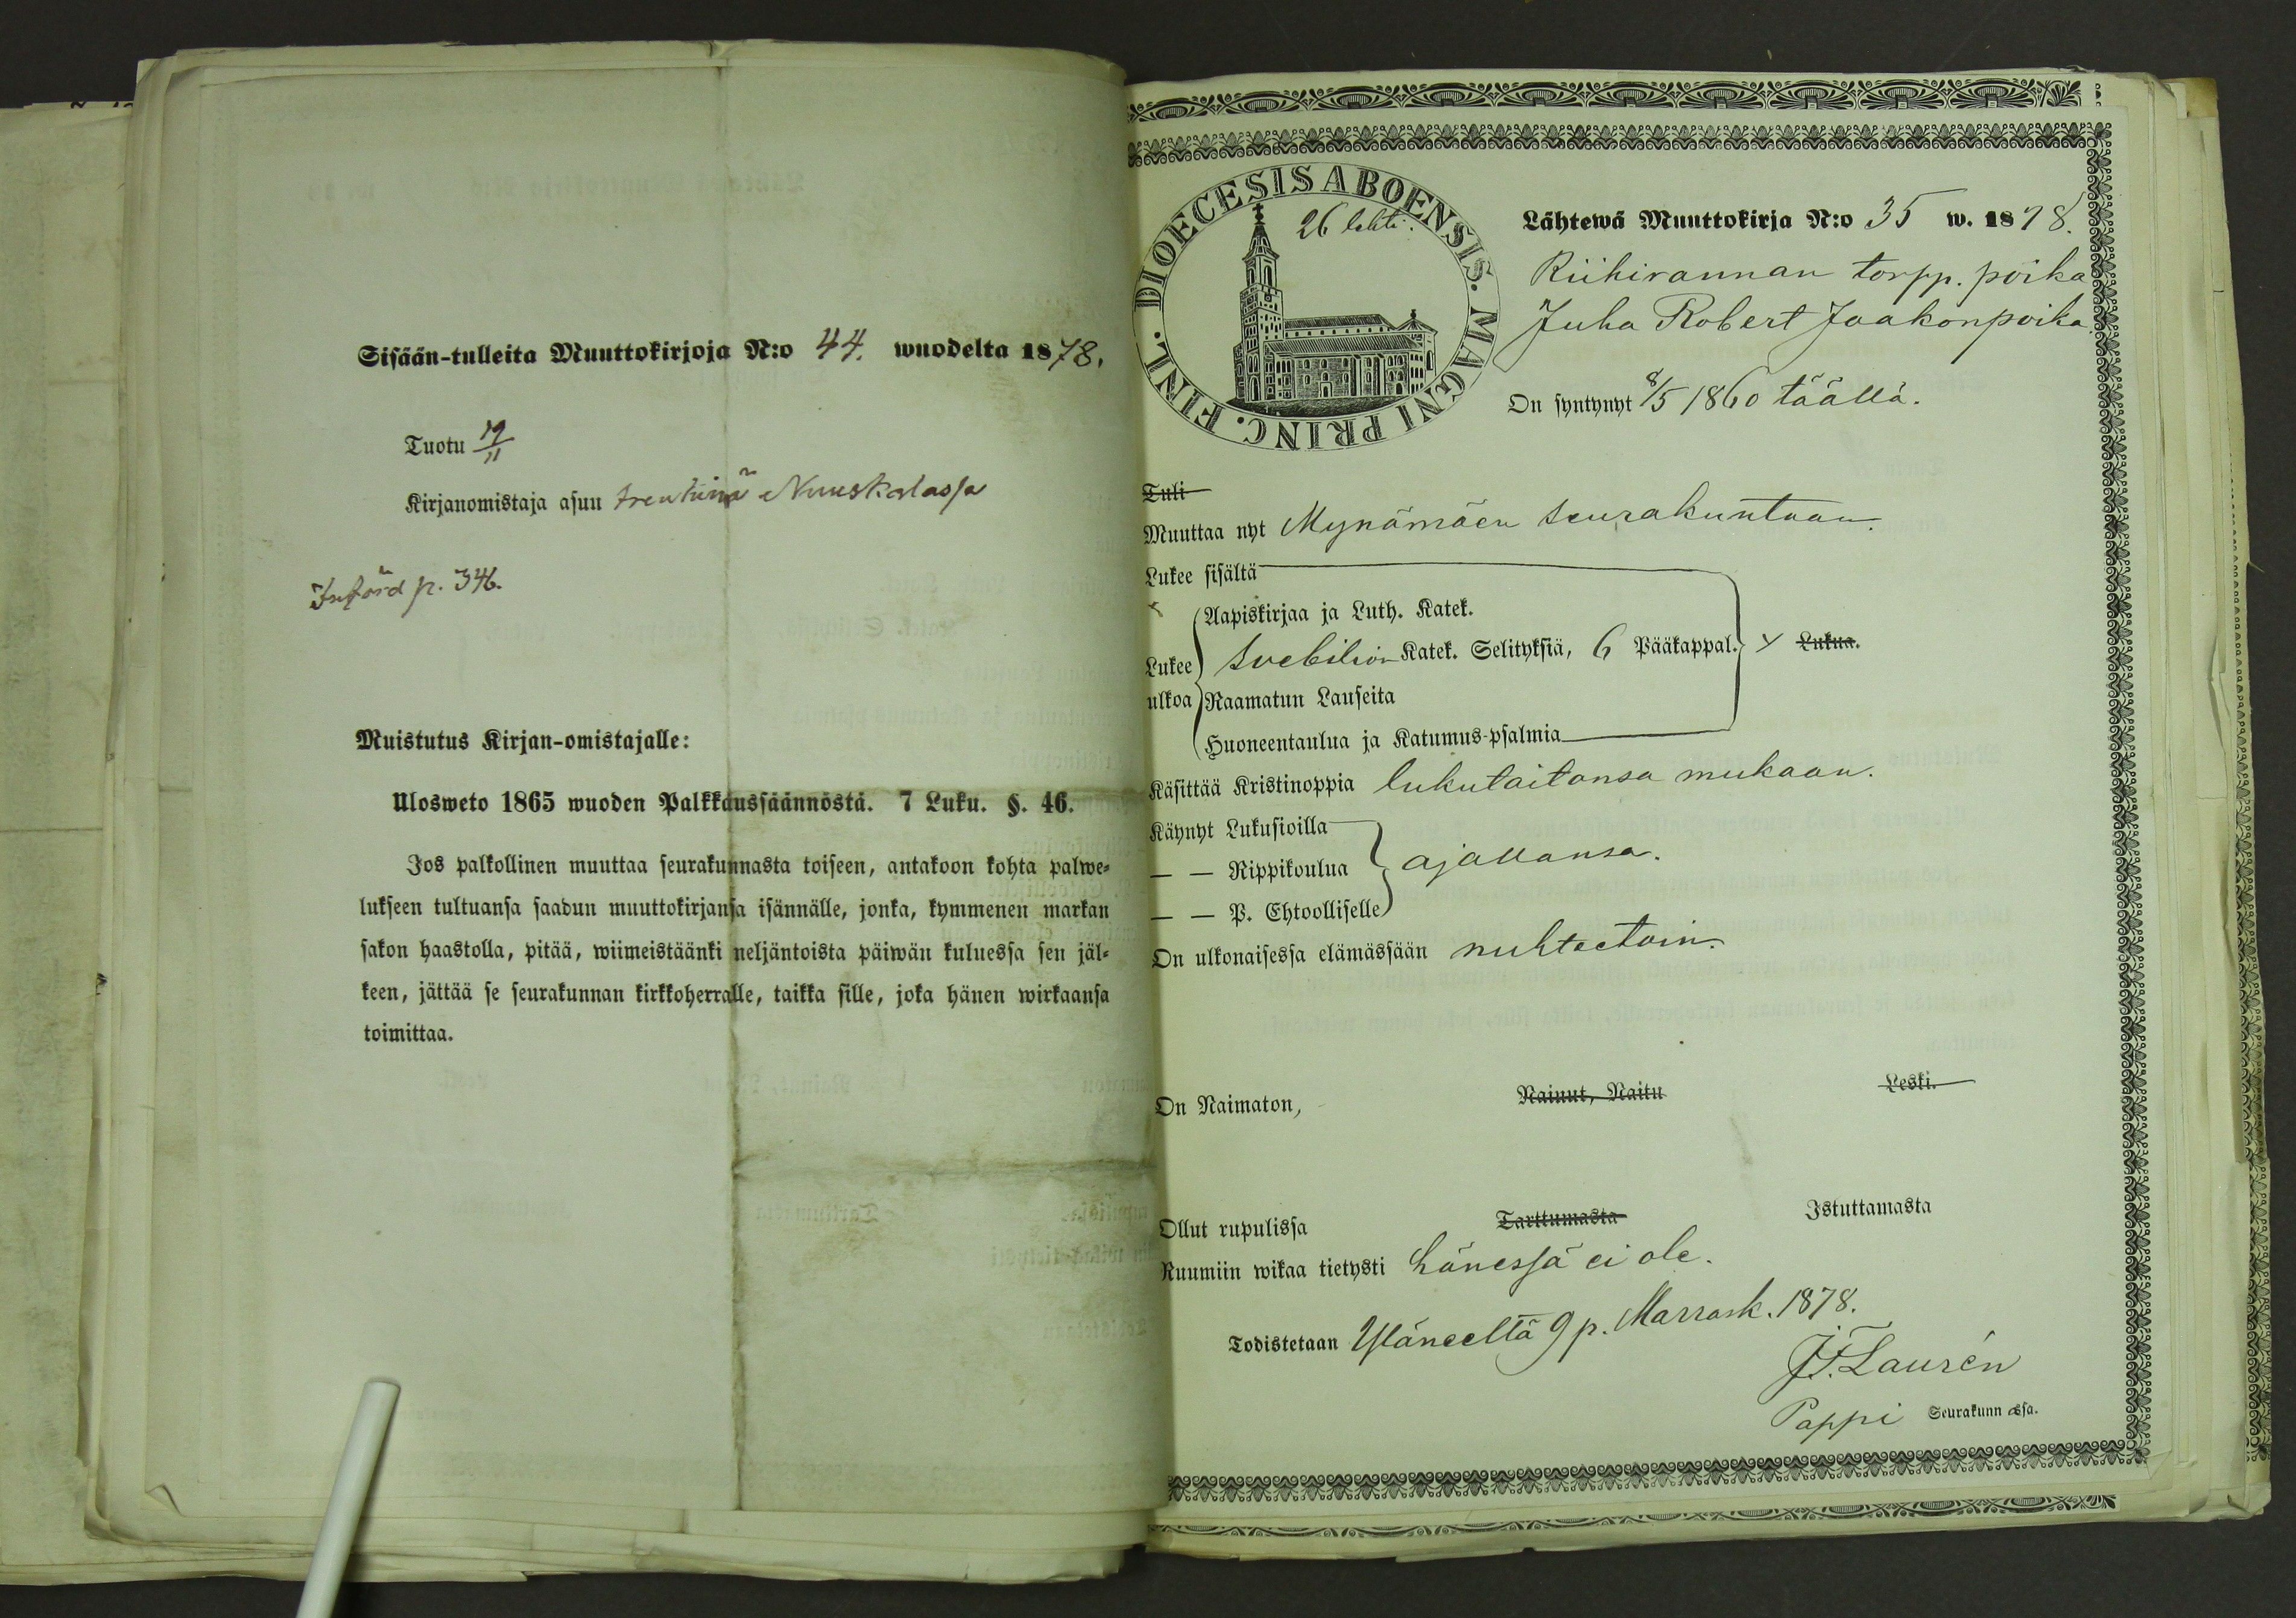 Sisään-tulleita Muuttokirjoja N:o 44. wuodelta 1878.
Tuotu 19/11
Kirjanomistaja asuu trenkinä Nuuskalassa
Införd p. 346.
Muistutus Kirjan-omistajalle:
Ulosweto 1865 wuoden Palkkaussäännöstä. 7 Luku. §. 46.
Jos palkollinen muuttaa seurakunnasta toiseen, antakoon kohta palwe-
lukseen tultuansa saadun muuttokirjansa isännälle, jonka, kymmenen markan
sakon haastolla, pitää, wiimeistäänki neljäntoista päiwän kuluessa sen jäl-
keen, jättää se seurakunnan kirkkoherralle, taikka sille, joka hänen wirkaansa
toimittaa.
DIOECESIS ABOENSIS. MAGNI PRINC. FINL.
26 lehti.
Lähtewä Muuttokirja N:o 35 w. 1878.
Riihirannan torpp. poika
Juha Robert Jaakonpoika.
On syntynyt 8/5 1860 täällä.
Tuli
Muuttaa nyt Mynämäen seurakuntaan.
Lukee sisältä
Aapiskirjaa ja Luth. Katek.
Lukee Svebilion Katek. Selityksiä, 6 Pääkappal. y Lukua.
ulkoa Raamatun Lauseita
Huoneentaulua ja Katumus-psalmia
Käsittää Kristinoppia lukutaitonsa mukaan.
Käynyt Lukusioilla
— — Rippikoulua ajallansa.
— — P. Ehtoolliselle
On ulkonaisessa elämässään nuhteetoin.
On Naimaton, Nainut, Naitu Leski.
Ollut rupulissa Tarttumasta Istuttamasta
Ruumiin wikaa tietysti hänessä ei ole.
Todistetaan Yläneeltä 9 p. Marrask. 1878.
J. F. Laurén
Pappi Seurakunnassa.